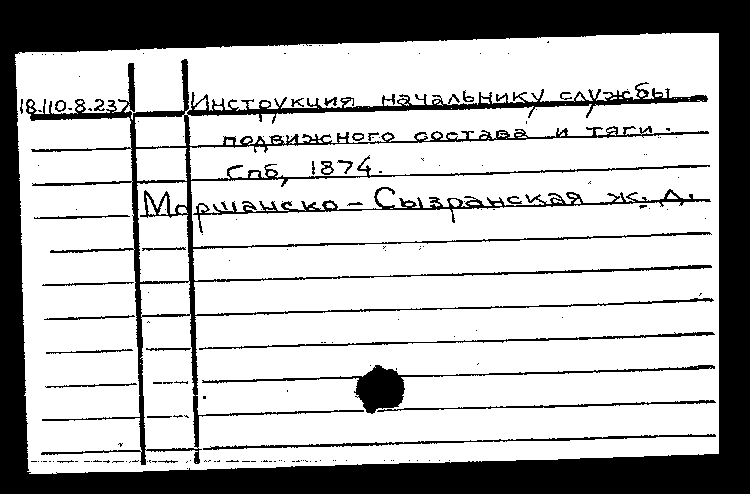 18.110.8.237 Инструкция начальнику службы
подвижного состава и тяги.
Спб, 1874.
Моршанско-Сызранская ж. д.